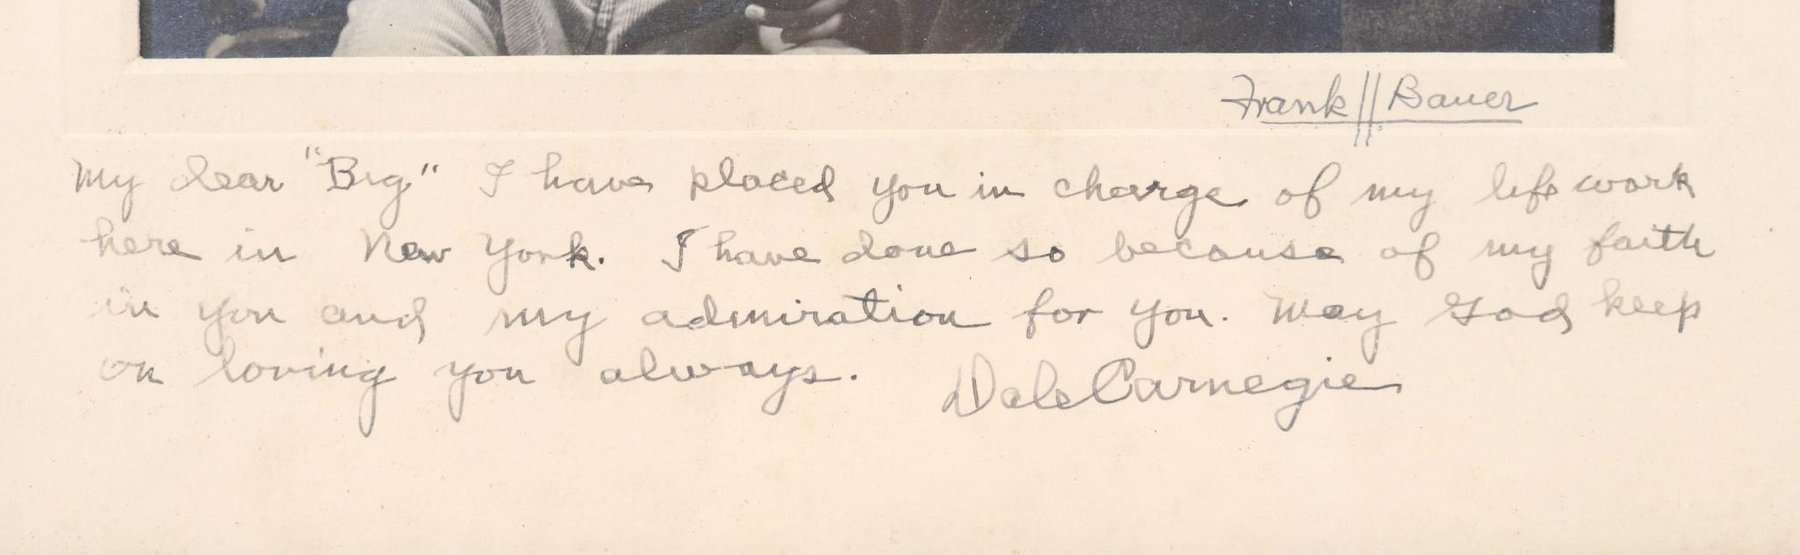 Frank Bauer
My dear "Big" I have placed you in charge of my life work
here in New York. I have done so because of my faith
in you and my admiration for you. May God keep
on loving you always. Dale Carnegie